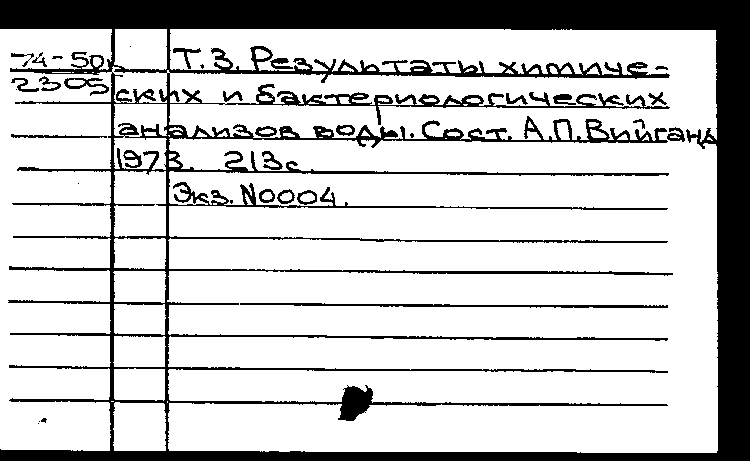 74-50в Т.3. Результаты химиче-
2305 ских и бактериологических
анализов воды. Сост. А.П.Вийганд
1973. 213с.
Экз. N0004.